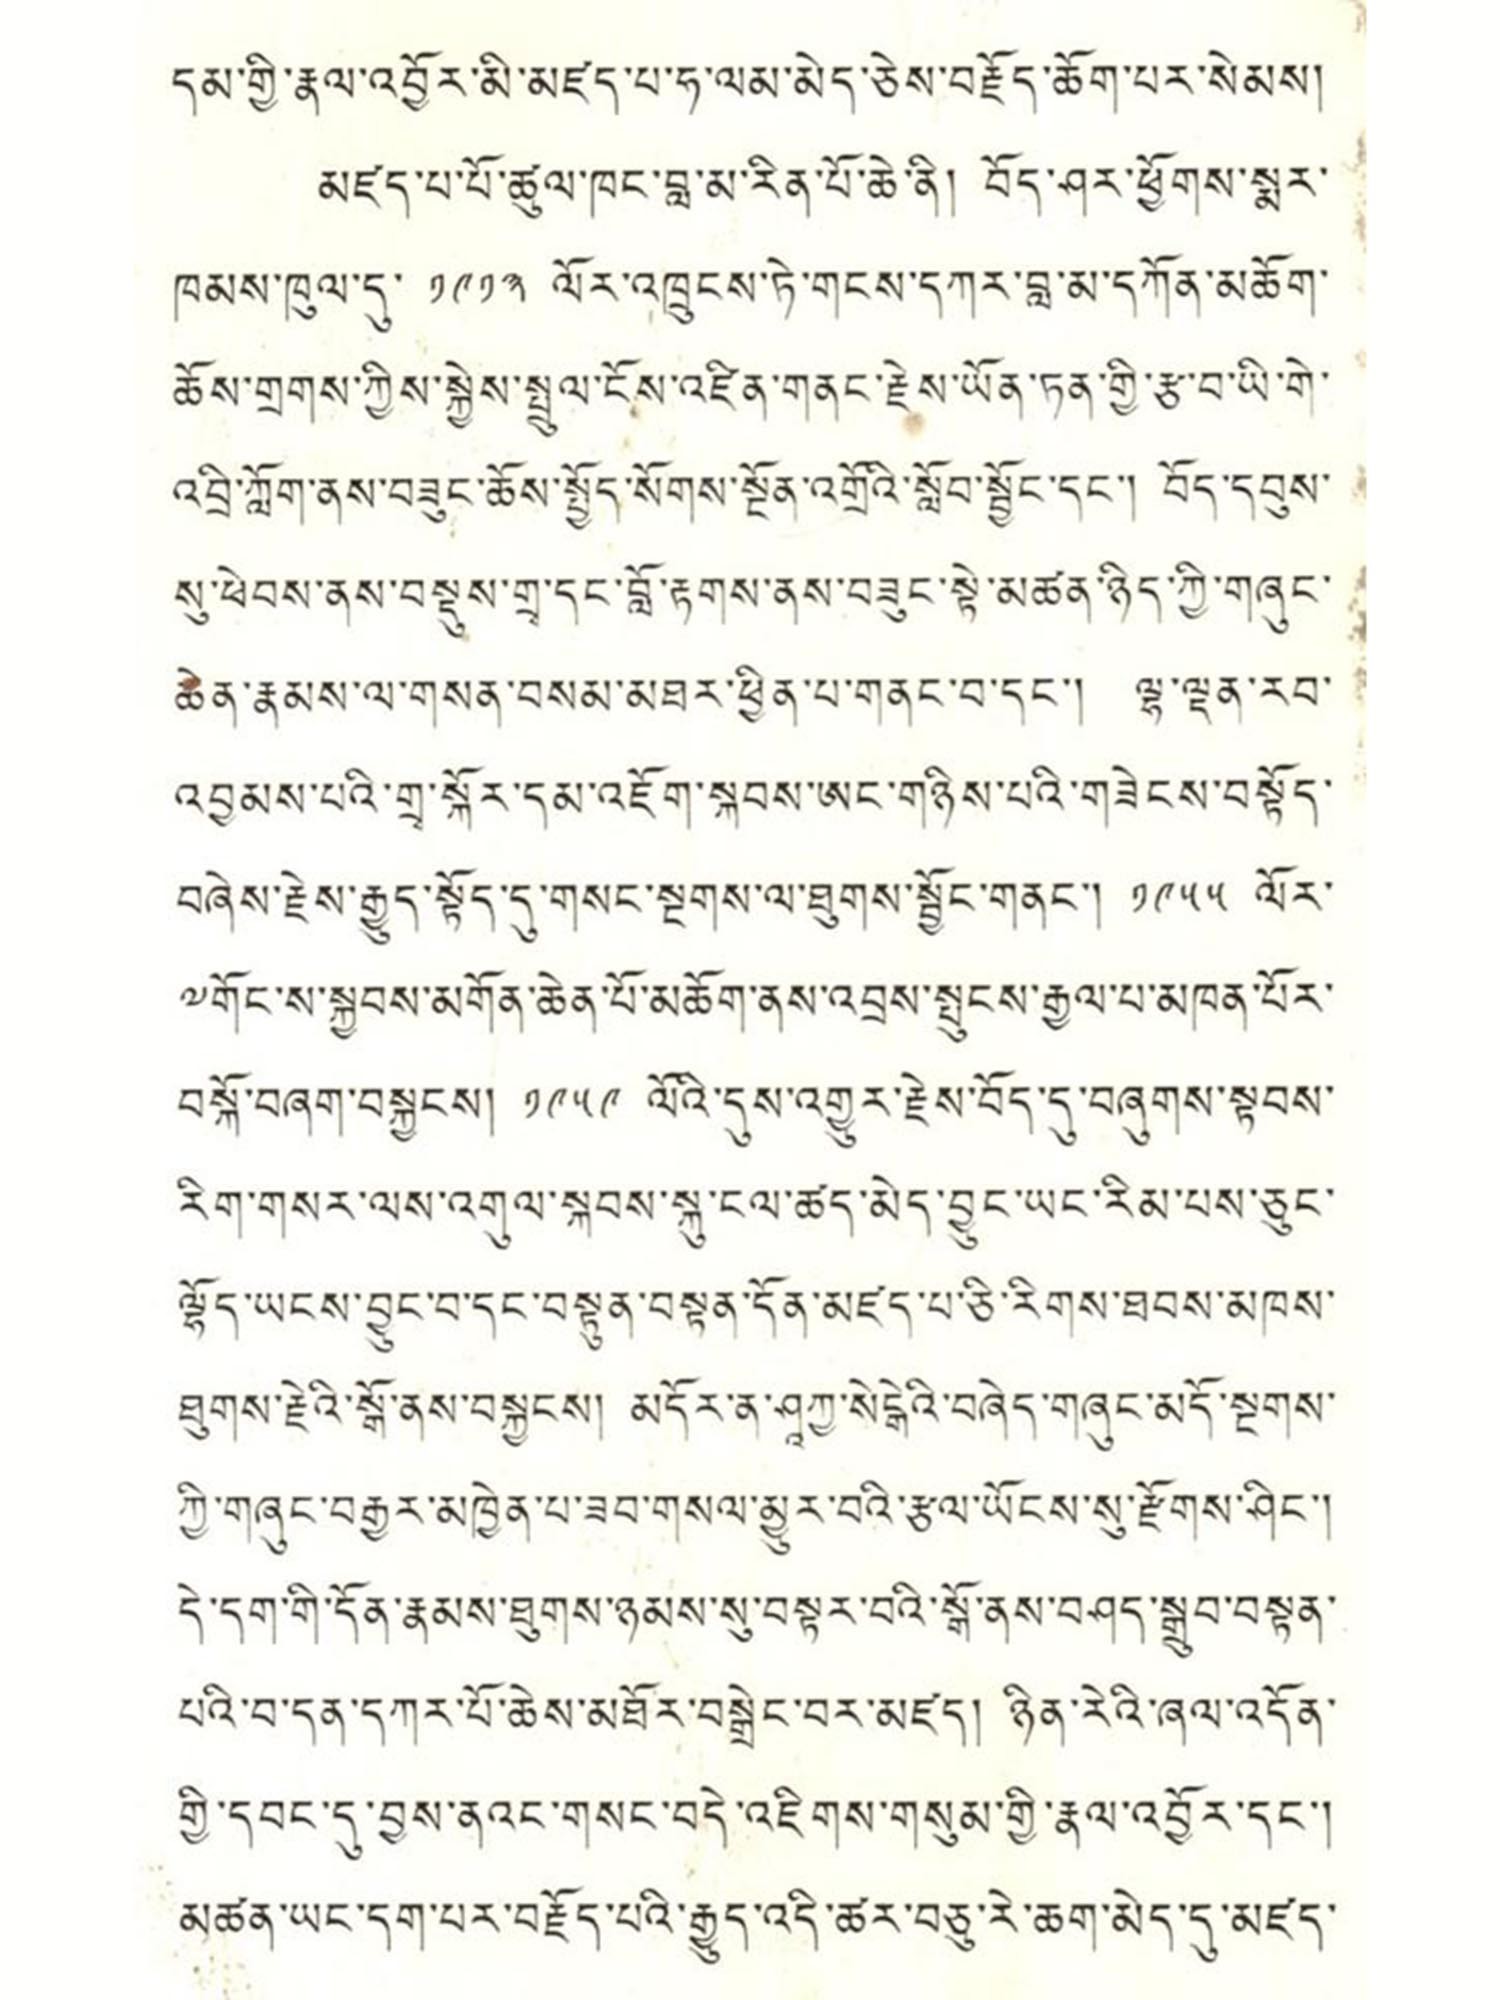 དམ་གྱི་རྣལ་འབྱོར་མི་མཛད་པ་ཧ་ལམ་མེད་ཅེས་བརྗོད་ཆོག་པར་སེམས།
མཛད་པ་པོ་ཚུལ་ཁང་བླ་མ་རིན་པོ་ཆེ་ནི། བོད་ཤར་ཕྱོགས་སྨར་
ཁམས་ཁུལ་དུ་ ༡༩༡༣ ལོར་འཁྲུངས་ཏེ་གངས་དཀར་བླ་མ་དཀོན་མཆོག་
ཆོས་གྲགས་ཀྱིས་སྐྱེས་སྤྲུལ་ངོས་འཛིན་གནང་རྗེས་ཡོན་ཏན་གྱི་རྩ་བ་ཡི་གེ་
འབྲི་ཀློག་ནས་བཟུང་ཆོས་སྤྱོད་སོགས་སྔོན་འགྲོའི་སློབ་སྦྱོང་དང་། བོད་དབུས་
སུ་ཕེབས་ནས་བསྡུས་གྲྭ་དང་བློ་རྟགས་ནས་བཟུང་སྟེ་མཚན་ཉིད་ཀྱི་གཞུང་
ཆེན་རྣམས་ལ་གསན་བསམ་མཐར་ཕྱིན་པ་གནང་བ་དང་། ལྷ་ལྡན་རབ་
འབྱམས་པའི་གྲྭ་སྐོར་དམ་འཇོག་སྐབས་ཨང་གཉིས་པའི་གཟེངས་བསྟོད་
བཞེས་རྗེས་རྒྱུད་སྟོད་དུ་གསང་སྔགས་ལ་ཐུགས་སྦྱོང་གནང་། ༡༩༥༥ ལོར་
༧གོང་ས་སྐྱབས་མགོན་ཆེན་པོ་མཆོག་ནས་འབྲས་སྤུངས་རྒྱལ་པ་མཁན་པོར་
བསྐོ་བཞག་བསྐྱངས། ༡༩༥༩ ལོའི་དུས་འགྱུར་རྗེས་བོད་དུ་བཞུགས་སྟབས་
རིག་གསར་ལས་འགུལ་སྐབས་སྐུ་ངལ་ཚད་མེད་བྱུང་ཡང་རིམ་པས་ཅུང་
ལྷོད་ཡངས་བྱུང་བ་དང་བསྟུན་བསྟན་དོན་མཛད་པ་ཅི་རིགས་ཐབས་མཁས་
ཐུགས་རྗེའི་སྒོ་ནས་བསྐྱངས། མདོར་ན་ཤཱཀྱ་སེངྒེའི་བཞེད་གཞུང་མདོ་སྔགས་
ཀྱི་གཞུང་བརྒྱར་མཁྱེན་པ་ཟབ་གསལ་མྱུར་བའི་རྩལ་ཡོངས་སུ་རྫོགས་ཤིང་།
དེ་དག་གི་དོན་རྣམས་ཐུགས་ཉམས་སུ་བསྟར་བའི་སྒོ་ནས་བཤད་སྒྲུབ་བསྟན་
པའི་བ་དན་དཀར་པོ་ཆེས་མཐོར་བསྒྲེང་བར་མཛད། ཉིན་རེའི་ཞལ་འདོན་
གྱི་དབང་དུ་བྱས་ནའང་གསང་བདེ་འཇིགས་གསུམ་གྱི་རྣལ་འབྱོར་དང་།
མཚན་ཡང་དག་པར་བརྗོད་པའི་རྒྱུད་འདི་ཚར་བཅུ་རེ་ཆག་མེད་དུ་མཛད་